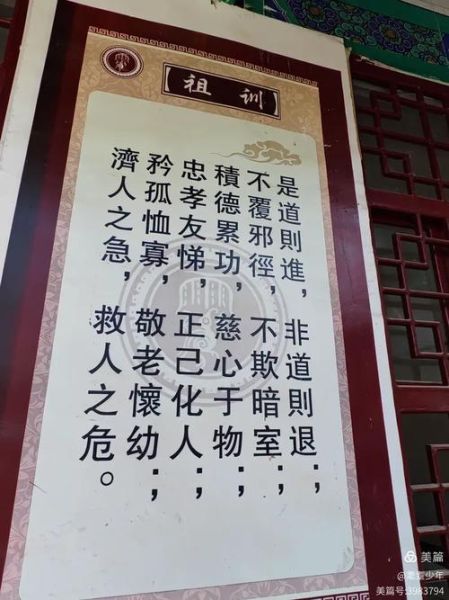 祖训
是道則進，非道則退；
不覆邪徑，不欺暗室；
積德累功，慈心于物；
忠孝友悌，正己化人；
矜孤恤寡，敬老懷幼；
濟人之急，救人之危。
美篇
美篇号:3983794